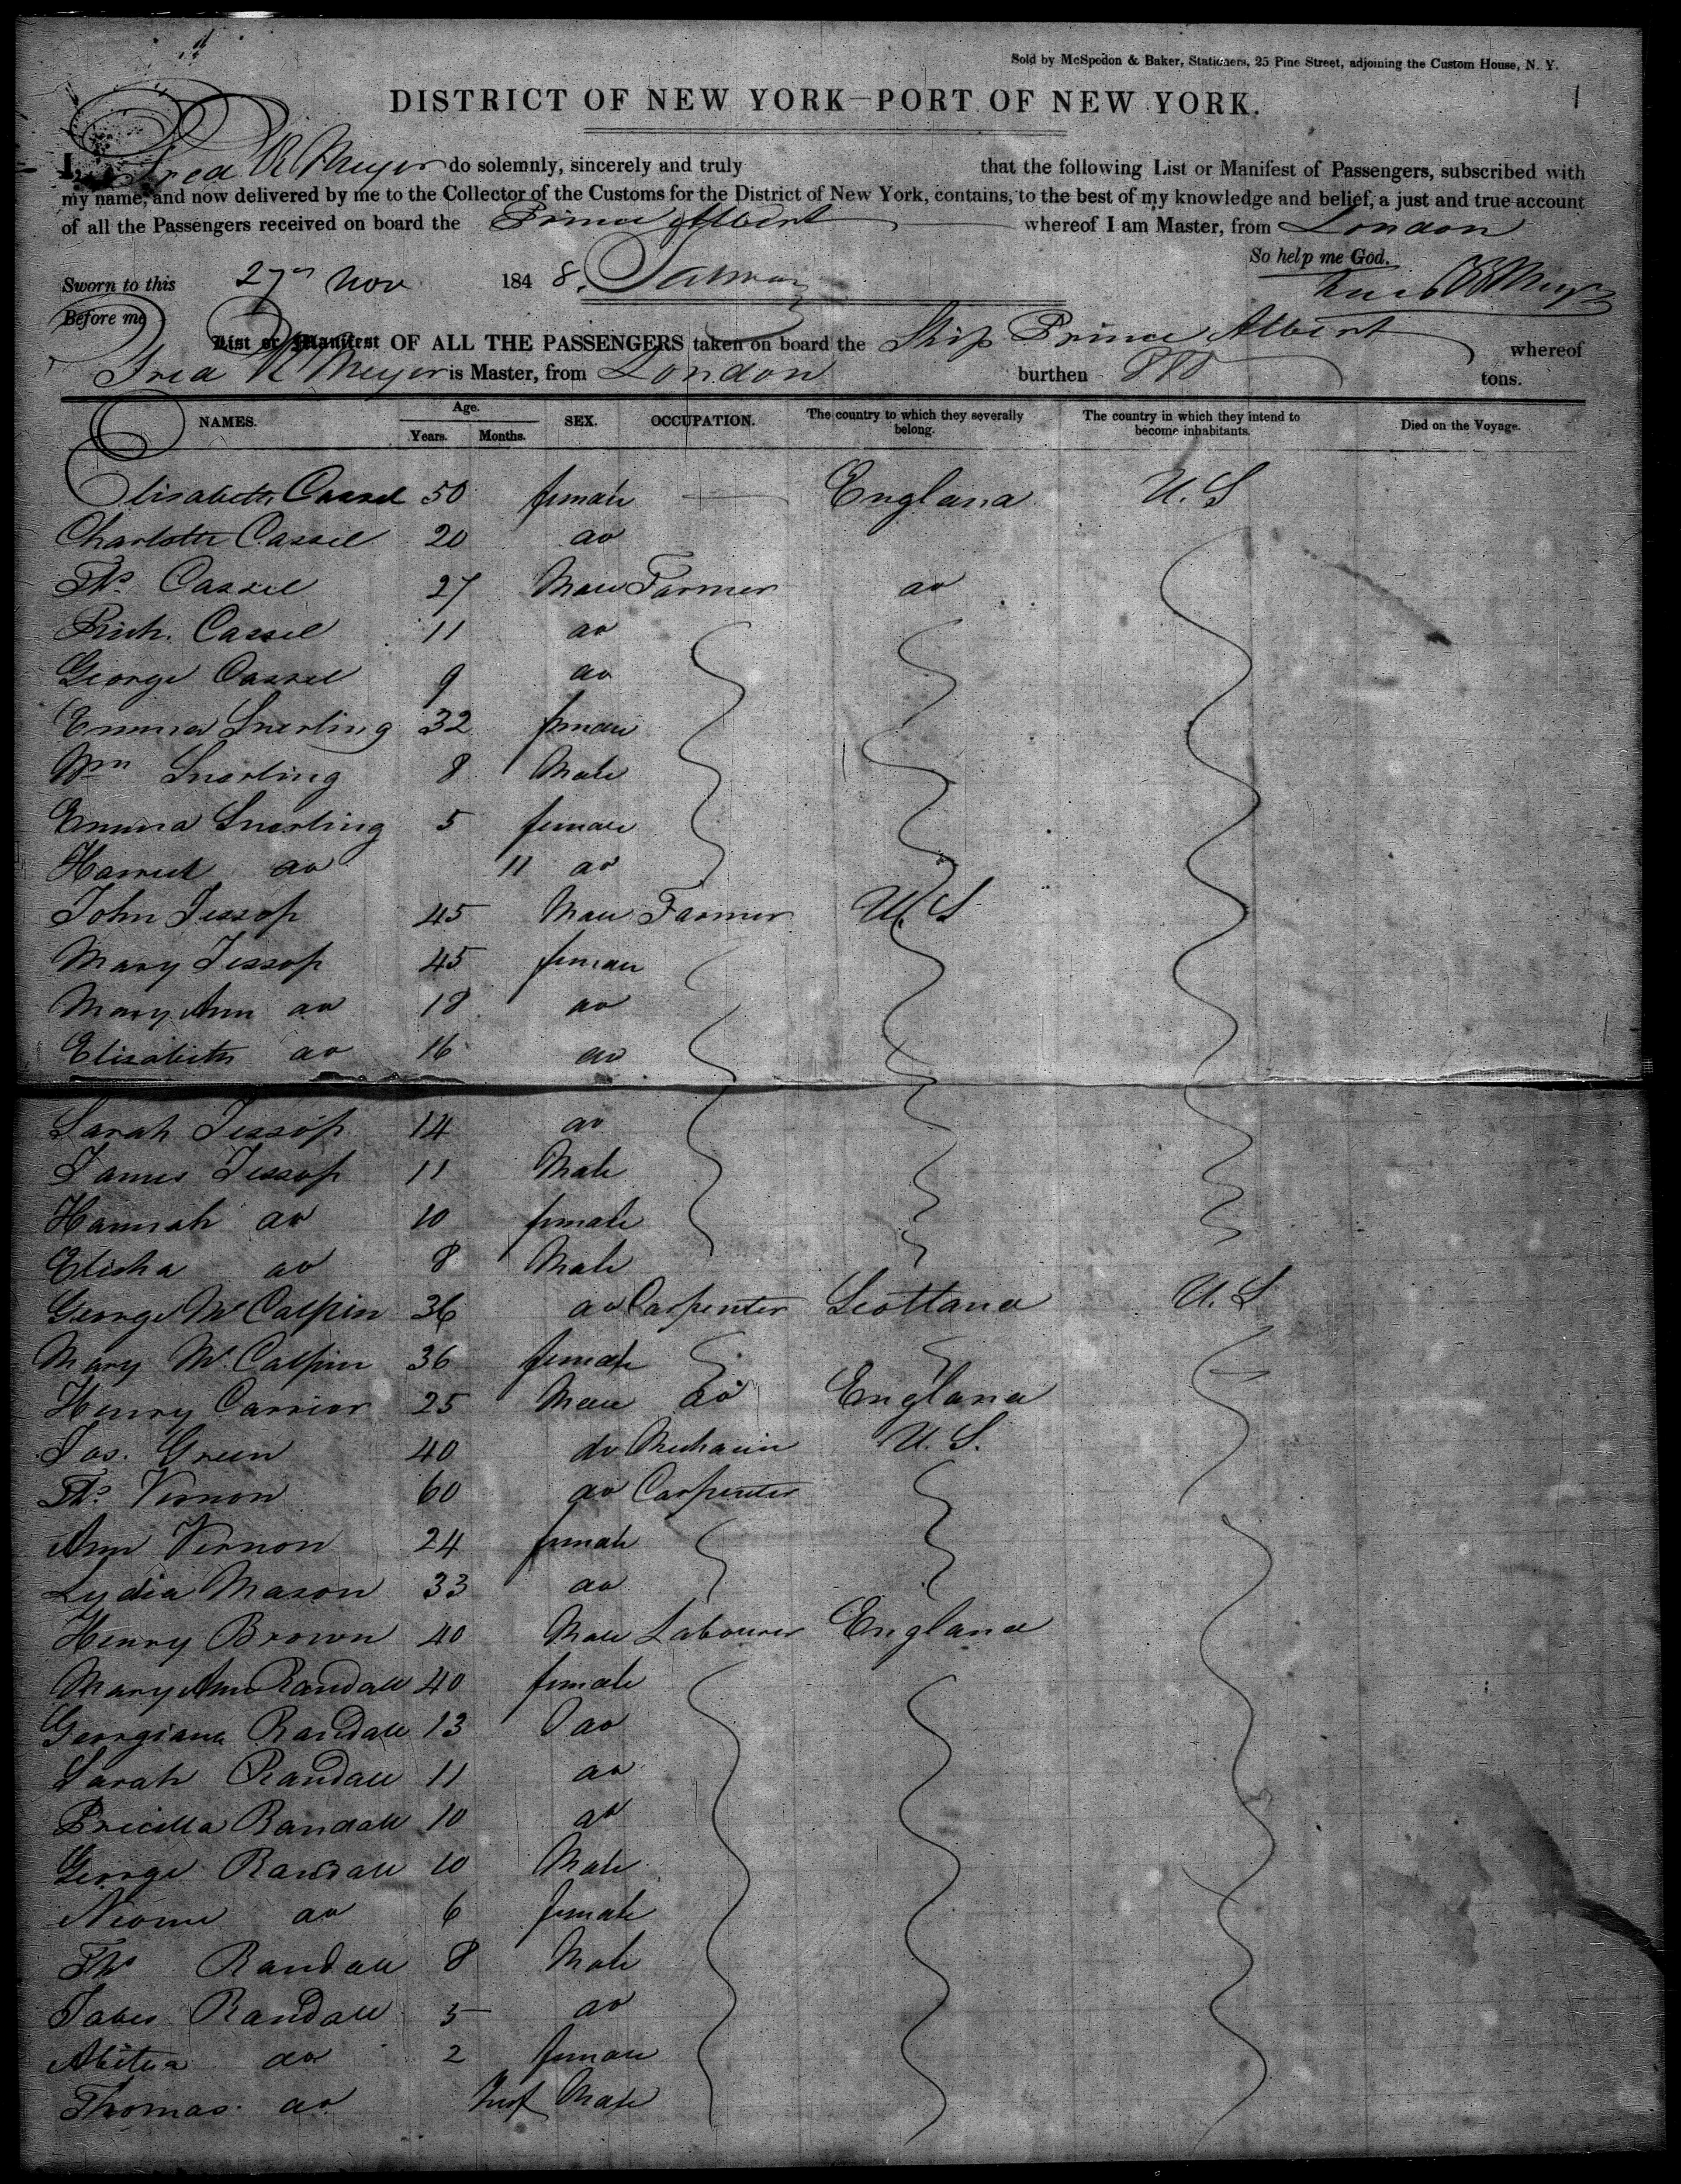 Sold by McSpedon & Baker, Stationers, 25 Pine Street, adjoining the Custom House, N. Y.
1
DISTRICT OF NEW YORK—PORT OF NEW YORK.
I, Fred R Meyer do solemnly, sincerely and truly that the following List or Manifest of Passengers, subscribed with
my name, and now delivered by me to the Collector of the Customs for the District of New York, contains, to the best of my knowledge and belief, a just and true account
of all the Passengers received on board the Prince Albert whereof I am Master, from London
So help me God.
Sworn to this 27 Nov 1848.
Before me
List or Manifest OF ALL THE PASSENGERS taken on board the Ship Prince Albert whereof
Fred R Meyer is Master, from London burthen tons.
NAMES. Age. Years. Months. SEX. OCCUPATION. The country to which they severally belong. The country in which they intend to become inhabitants. Died on the Voyage.
Elisabeth Cassel 50 female — England U.S
Charlotte Cassel 20 do
Ths. Cassel 27 Male Farmer do
Rich. Cassel 11 do
George Cassel 9 do
Emma Snerling 32 female
Wm Snerling 8 Male
Emma Snerling 5 female
Harriet do 11 do
John Jessop 45 Male Farmer U.S
Mary Jessop 45 female
Mary Ann do 18 do
Elizabeth do 16 do
Sarah Jessop 14 do
James Jessop 11 Male
Hannah do 10 female
Elisha do 8 Male
George McCalpin 36 do Carpenter Scotland U.S
Mary McCalpin 36 female
Henry Carrier 25 Male do England
Jas. Green 40 do Mechanic U.S.
Ths. Vernon 60 do Carpenter
Ann Vernon 24 female
Lydia Mason 33 do
Henry Brown 40 Male Labourer England
Mary Ann Randall 40 female
Georgiana Randall 13 do
Sarah Randall 11 do
Pricilla Randall 10 do
George Randall 10 Male
Neomi do 6 female
Ths Randall 8 Male
Jabes Randall 5 do
do 2 female
Thomas do Inf Male